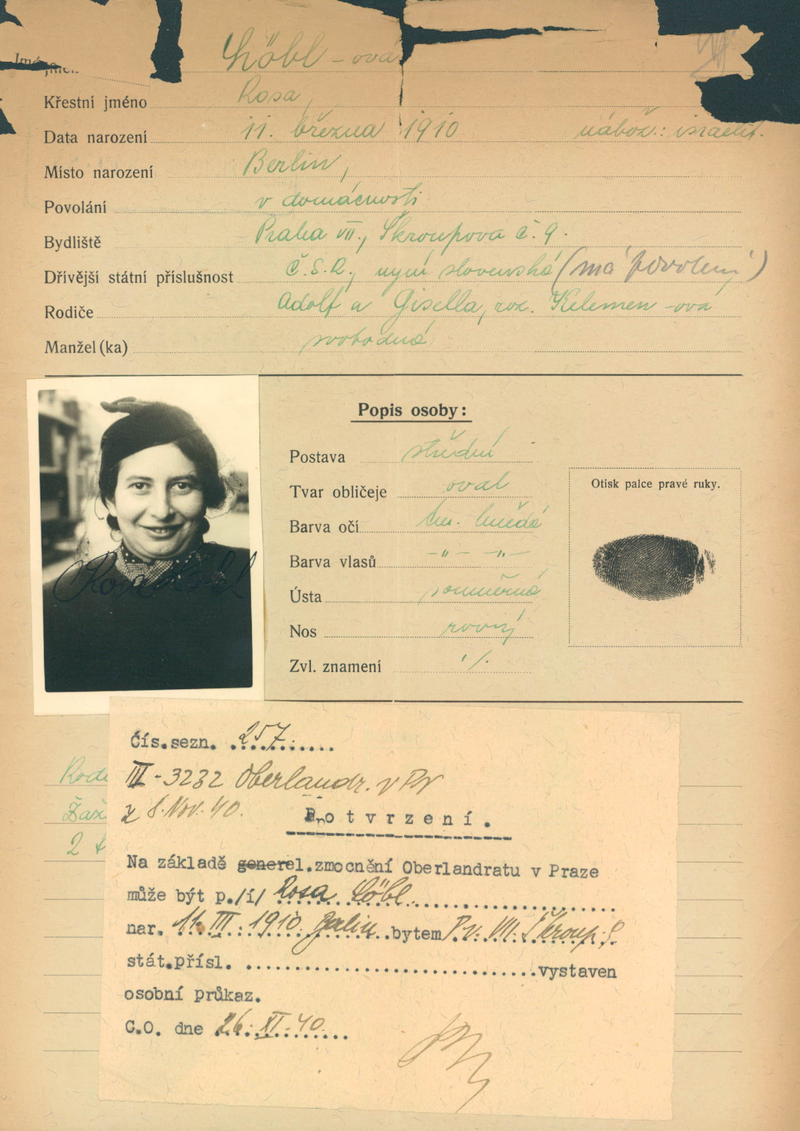 Löbl-ová
Křestní jméno Rosa,
Data narození 11. března 1910 nábož.: israelit.
Místo narození Berlin,
Povolání v domácnosti
Bydliště Praha VII., Škroupova č. 9.
Dřívější státní příslušnost Č.S.R., nyní slovenská (má povolený)
Rodiče Adolf a Gisella, roz. Kelemen-ová
Manžel (ka) svobodná
Popis osoby:
Postava střední
Tvar obličeje oval
Barva očí tm. hnědé
Barva vlasů -"- -"-
Ústa souměrná
Nos rovný
Zvl. znamení ./.
Otisk palce pravé ruky.
Rosa Löbl
Čís.sezn. 257.
III-3232 Oberlandr. v
z 8. Nov. 40.
Potvrzení.
Na základě generel.zmocnění Oberlandratu v Praze
může být p./í/ Rosa Löbl
nar. 11. III. 1910 Berlin bytem Pr. VII. Škroup. 9
stát.přísl. vystaven
osobní průkaz.
C.O. dne 26. XI. 40.